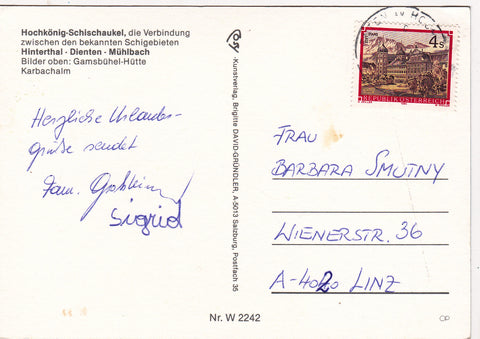 Hochkönig-Schischaukel, die Verbindung
zwischen den bekannten Schigebieten
Hinterthal - Dienten - Mühlbach
Bilder oben: Gamsbühel-Hütte
Karbachalm
Herzliche Urlaubs-
grüße sendet
Fam.
Sigrid
-Kunstverlag, Brigitte DAVID-GRÜNDLER, A-5013 Salzburg, Postfach 35
Nr. W 2242
4 S
REPUBLIK ÖSTERREICH
FRAU
BARBARA SMUTNY
WIENERSTR. 36
A-4020 LINZ